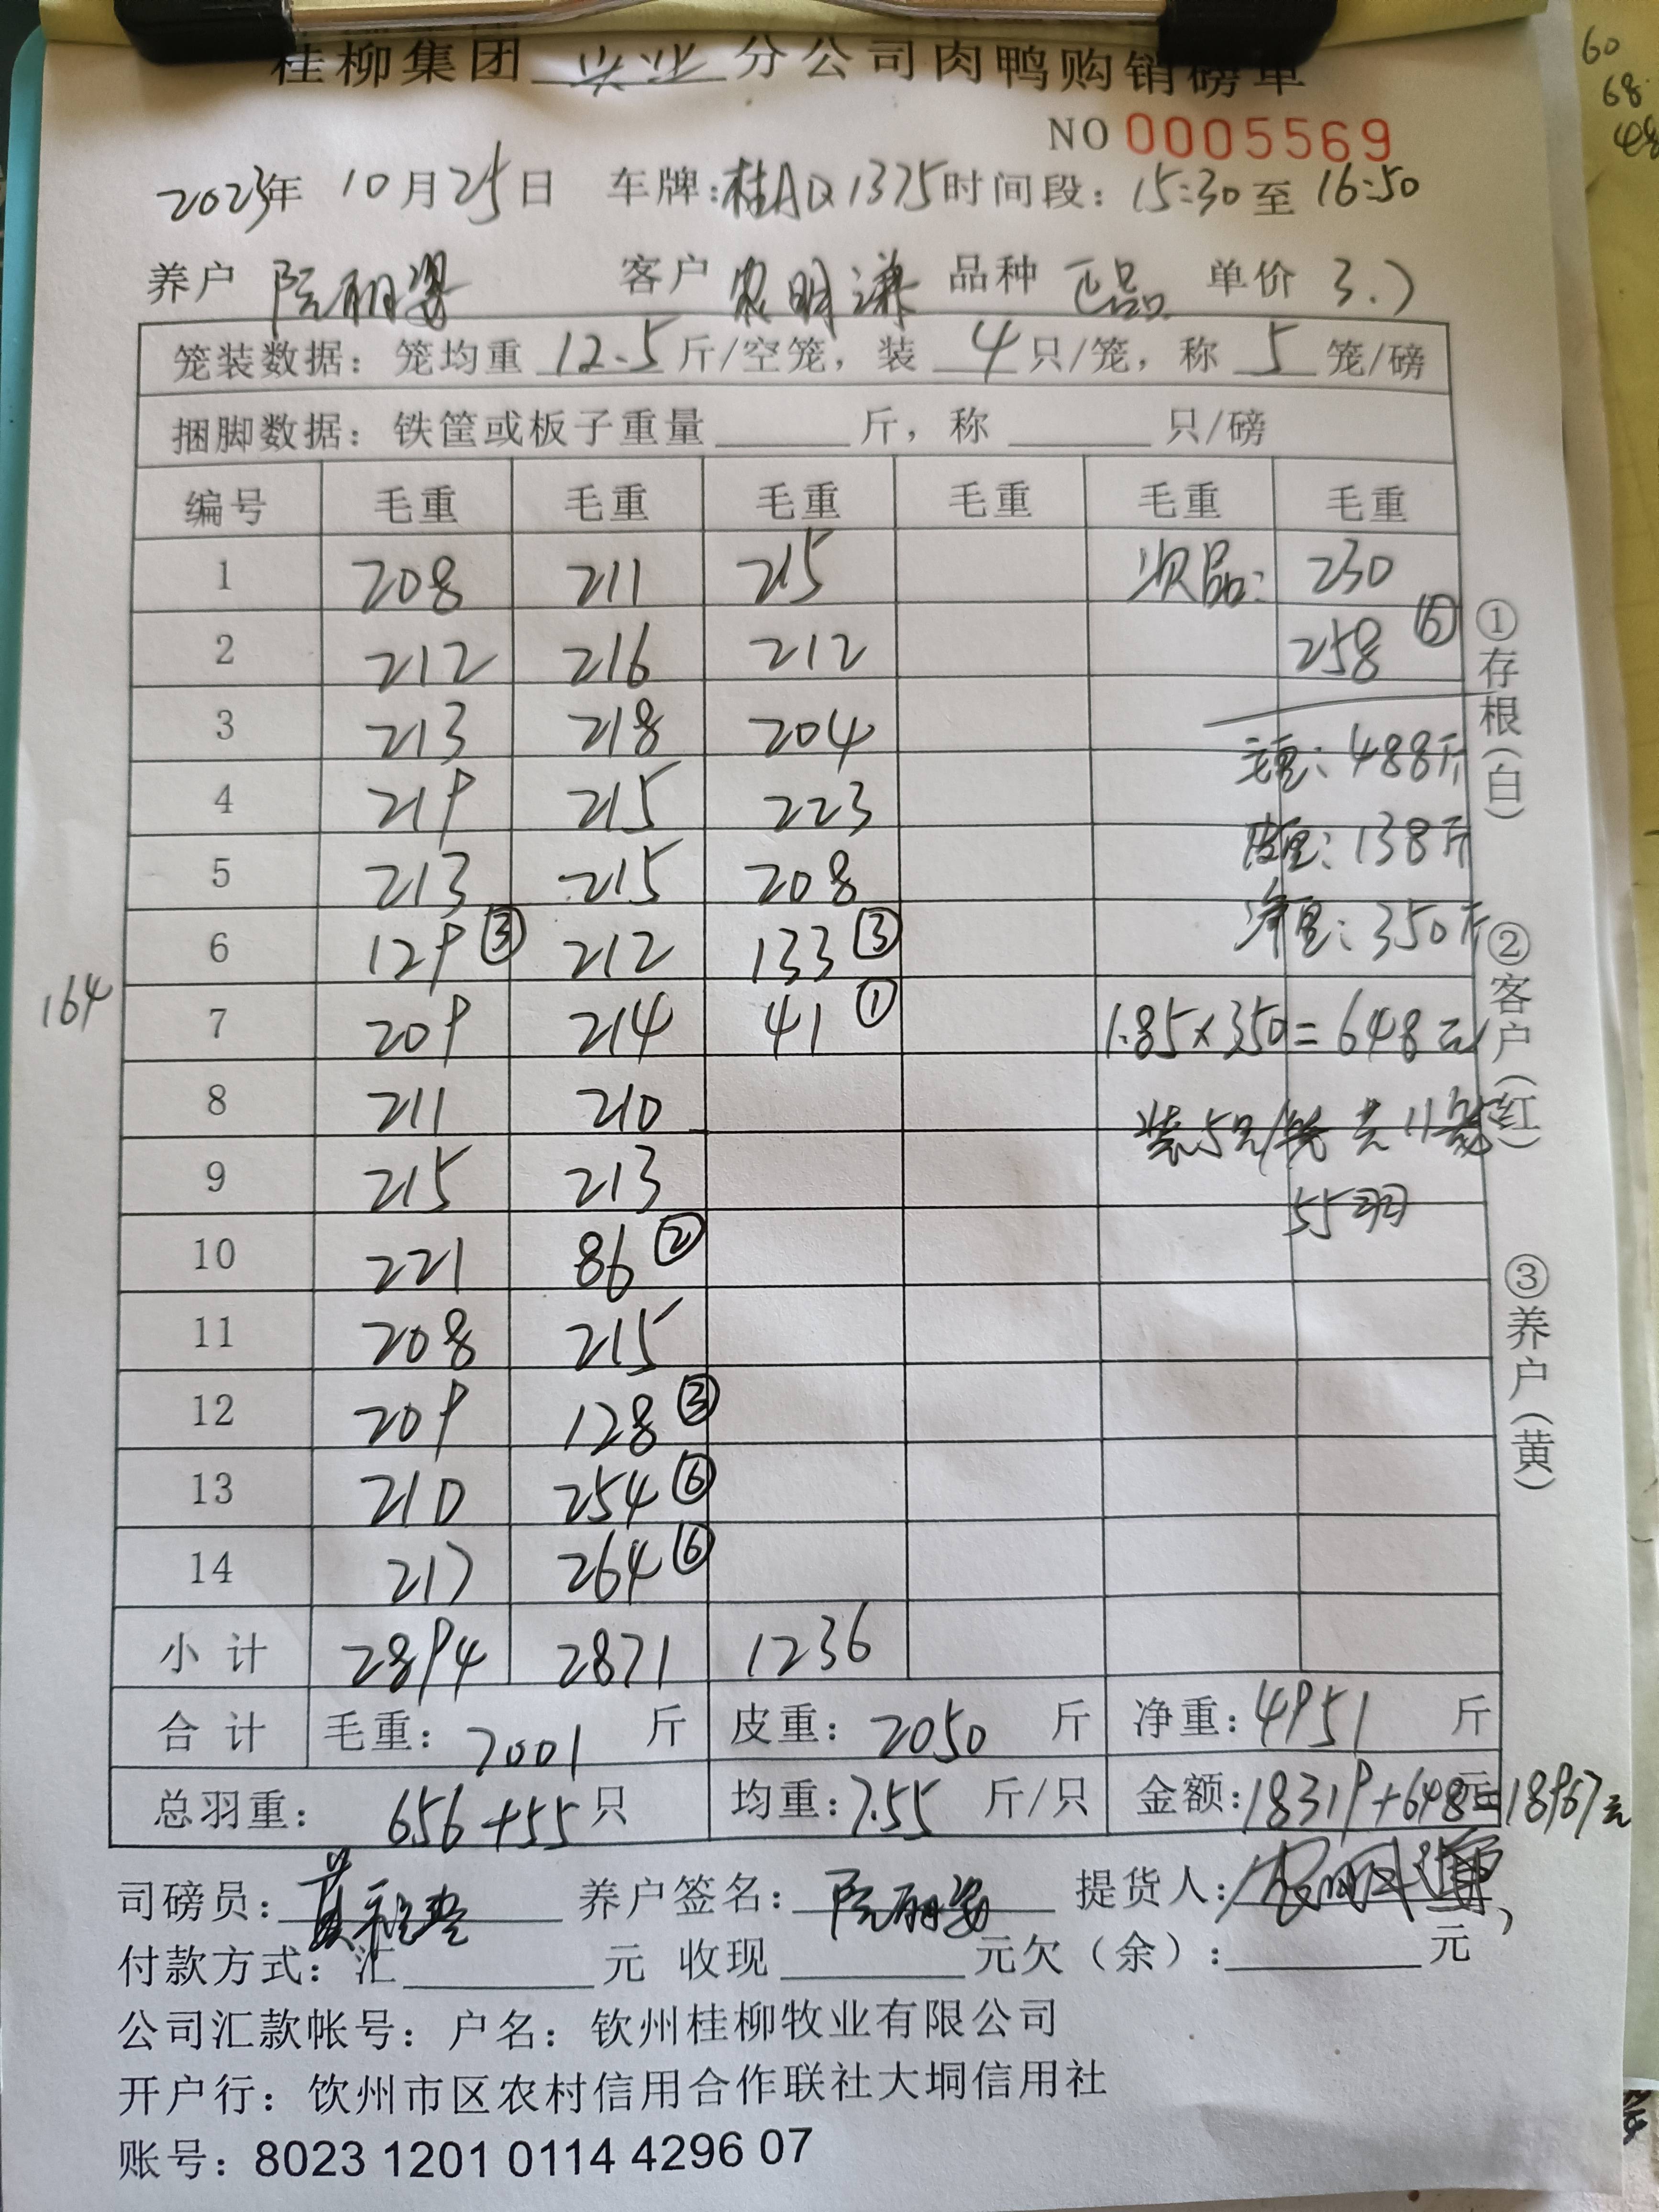 桂柳集团 兴业 分公司肉鸭购销磅单
NO 0005569
2023年 10月25日 车牌:桂AQ1375 时间段: 15:30 至 16:50
养户 阮丽婴 客户 农明谦 品种 正品 单价 3.7
笼装数据: 笼均重 12.5 斤/空笼, 装 4 只/笼, 称 5 笼/磅
捆脚数据: 铁筐或板子重量 斤, 称 只/磅
编号 毛重 毛重 毛重 毛重 毛重 毛重
1 208 211 215 次品: 230
2 212 216 212 258 ⑥
3 213 218 204 毛重: 488斤
4 219 215 223 皮重: 138斤
5 213 215 208 净重: 350斤
6 129 ③ 212 133 ③
164 7 209 214 41 ① 1.85×350=648元
8 211 210 装5只/笼 共11笼
9 215 213 55羽
10 221 86 ②
11 208 215
12 209 128 ③
13 210 254 ⑥
14 217 264 ⑥
小计 2894 2871 1236
合计 毛重: 7001 斤 皮重: 2050 斤 净重: 4951 斤
总羽重: 656+55 只 均重: 7.55 斤/只 金额: 18319+648元=18967元
司磅员: 养户签名: 提货人: 农明谦
付款方式: 汇 元 收现 元欠(余): 元
公司汇款帐号: 户名: 钦州桂柳牧业有限公司
开户行: 饮州市区农村信用合作联社大垌信用社
账号: 8023 1201 0114 4296 07
①存根(白)
②客户(红)
③养户(黄)
60
68
48